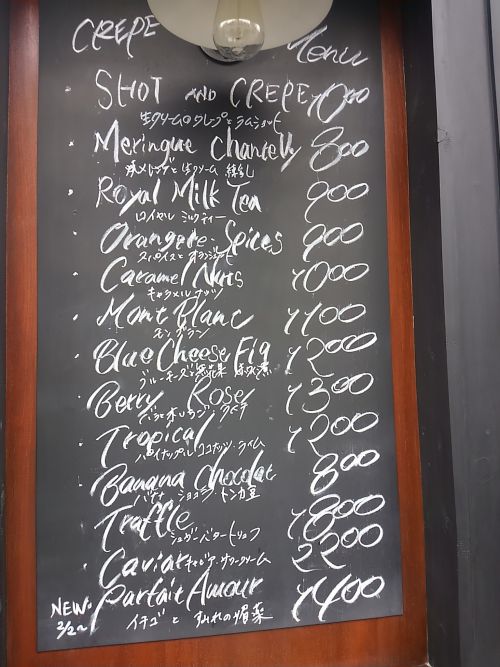 CREPE Menu
SHOT AND CREPE 1000
生クリームのクレープとラムショット
Meringue Chantelly 800
メレンゲと生クリーム
Royal Milk Tea 900
ロイヤル ミルクティー
Orangere Spices 900
スパイスと
Caramel Nuts 1000
キャラメル ナッツ
Mont Blanc 1100
モンブラン
Blue Cheese Fig 1200
ブルーチーズと無花果
Berry Rose 1300
Tropical 1200
パイナップル ココナッツ・ライム
Banana Chocolat 800
バナナ ショコラ・トンカ豆
Truffle 1800
シュガー・バター・トリュフ
Caviar キャビア・サワークリーム 2200
Parfait Amour 1400
NEW・
2/2〜 イチゴと すみれの媚薬